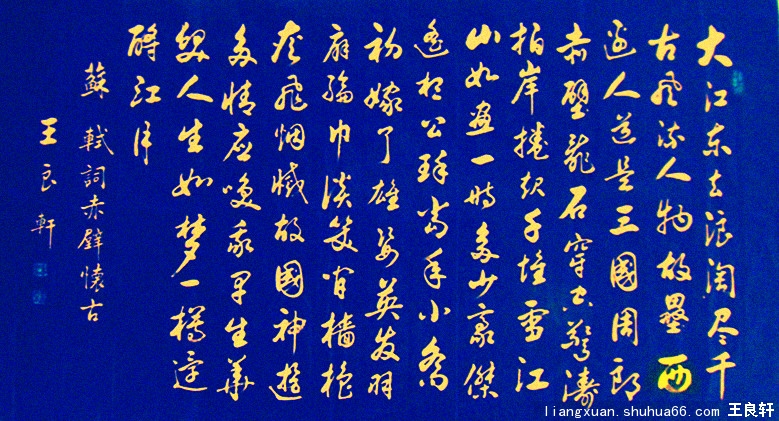 大江东去浪淘尽千
古风流人物故壘西
边人道是三國周郎
赤壁乱石穿空驚濤
拍岸捲起千堆雪江
山如画一时多少豪傑
遥想公瑾当年小喬
初嫁了雄姿英发羽
扇綸巾谈笑间檣櫓
灰飛烟滅故國神遊
多情应笑我早生華
髪人生如梦一樽还
酹江月
蘇軾詞赤壁懷古
王良軒
liangxuan.shuhua66.com 王良轩